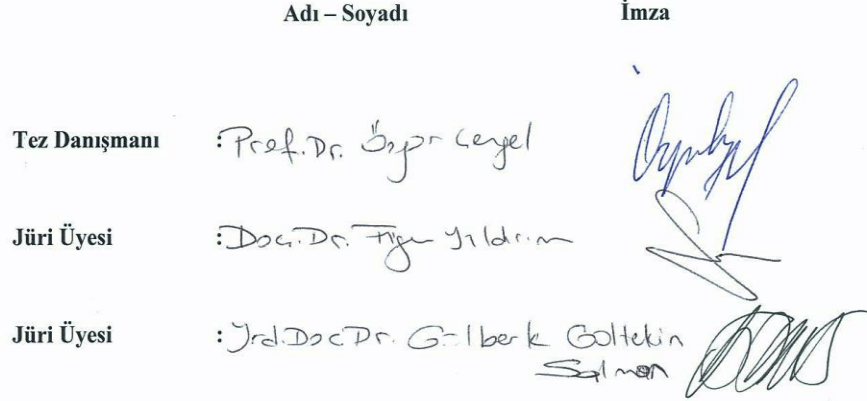 Adı – Soyadı İmza
Tez Danışmanı :Prof.Dr. Özgür Çengel
Jüri Üyesi :Doç.Dr. Figen Yıldırım
Jüri Üyesi :Yrd.Doç.Dr. Gülberk Gültekin
Salman